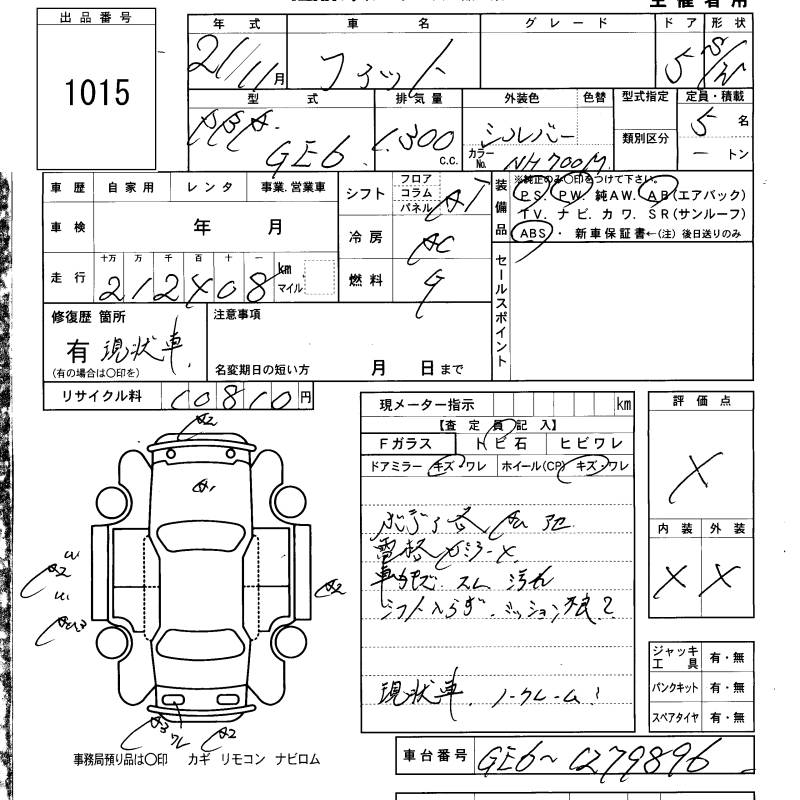 出品番号
1015
年式 車名 グレード ドア 形状
21/11月 フィット 5 S/W
型式 排気量 外装色 色替 型式指定 定員・積載
DBA. GE6 1,300 c.c. シルバー カラーNo. NH700M 類別区分 5名 - トン
車歴 自家用 レンタ 事業.営業車 シフト フロア コラム パネル AT
装備品 ※純正のみ〇印をつけて下さい。
PS. PW. 純AW. AB(エアバック)
TV. ナビ. カワ. SR(サンルーフ)
ABS・ 新車保証書←(注) 後日送りのみ
車検 年 月 冷房 AC
走行 十万 万 千 百 十 一 212408 km マイル 燃料 G
セールスポイント
修復歴 箇所 注意事項
有 現状車.
(有の場合は〇印を) 名変期日の短い方 月 日まで
リサイクル料 10810円
現メーター指示 km
【査定員記入】
Fガラス トビ石 ヒビワレ
ドアミラー キズ・ワレ ホイール(CP) キズ・ワレ
評価点
X
内装 外装
X X
A2
A1
A2
A2
A3 ワレ A2
電格
車内 スレ 汚れ
シフト入らず. ミッション不良?
現状車. ノークレーム!
ジャッキ 工具 有・無
パンクキット 有・無
スペアタイヤ 有・無
事務局預り品は〇印 カギ リモコン ナビロム
車台番号 GE6~1279896